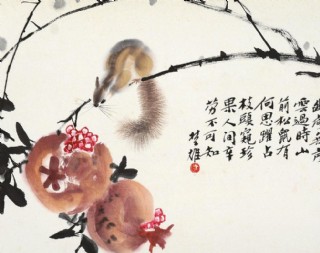 雲過時山
前松氣有
何思躍占
枝頭窺珍
果人间辛
勞不可知
楚雄